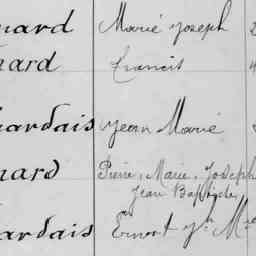 nard Marie Joseph 2
nard Francis
hardais Jean Marie
nard Pierre, Marie, Joseph
Jean Baptiste
hardais Ernest